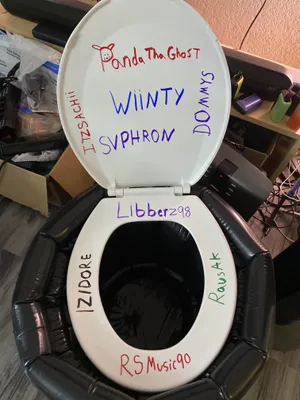 PandaThaGhosT
ITZSACHii
WiiNTY
DOMMYS
SVPHRON
Libberz98
IZIDORE
RausAK
RSMusic90